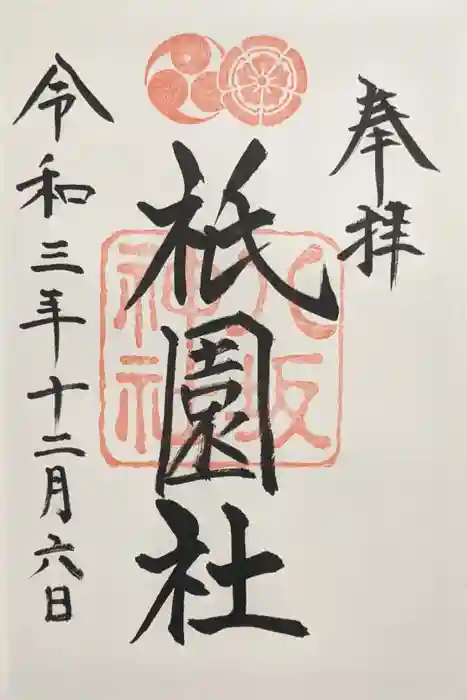 奉拝
祇園社
八坂
神社
令和三年十二月六日